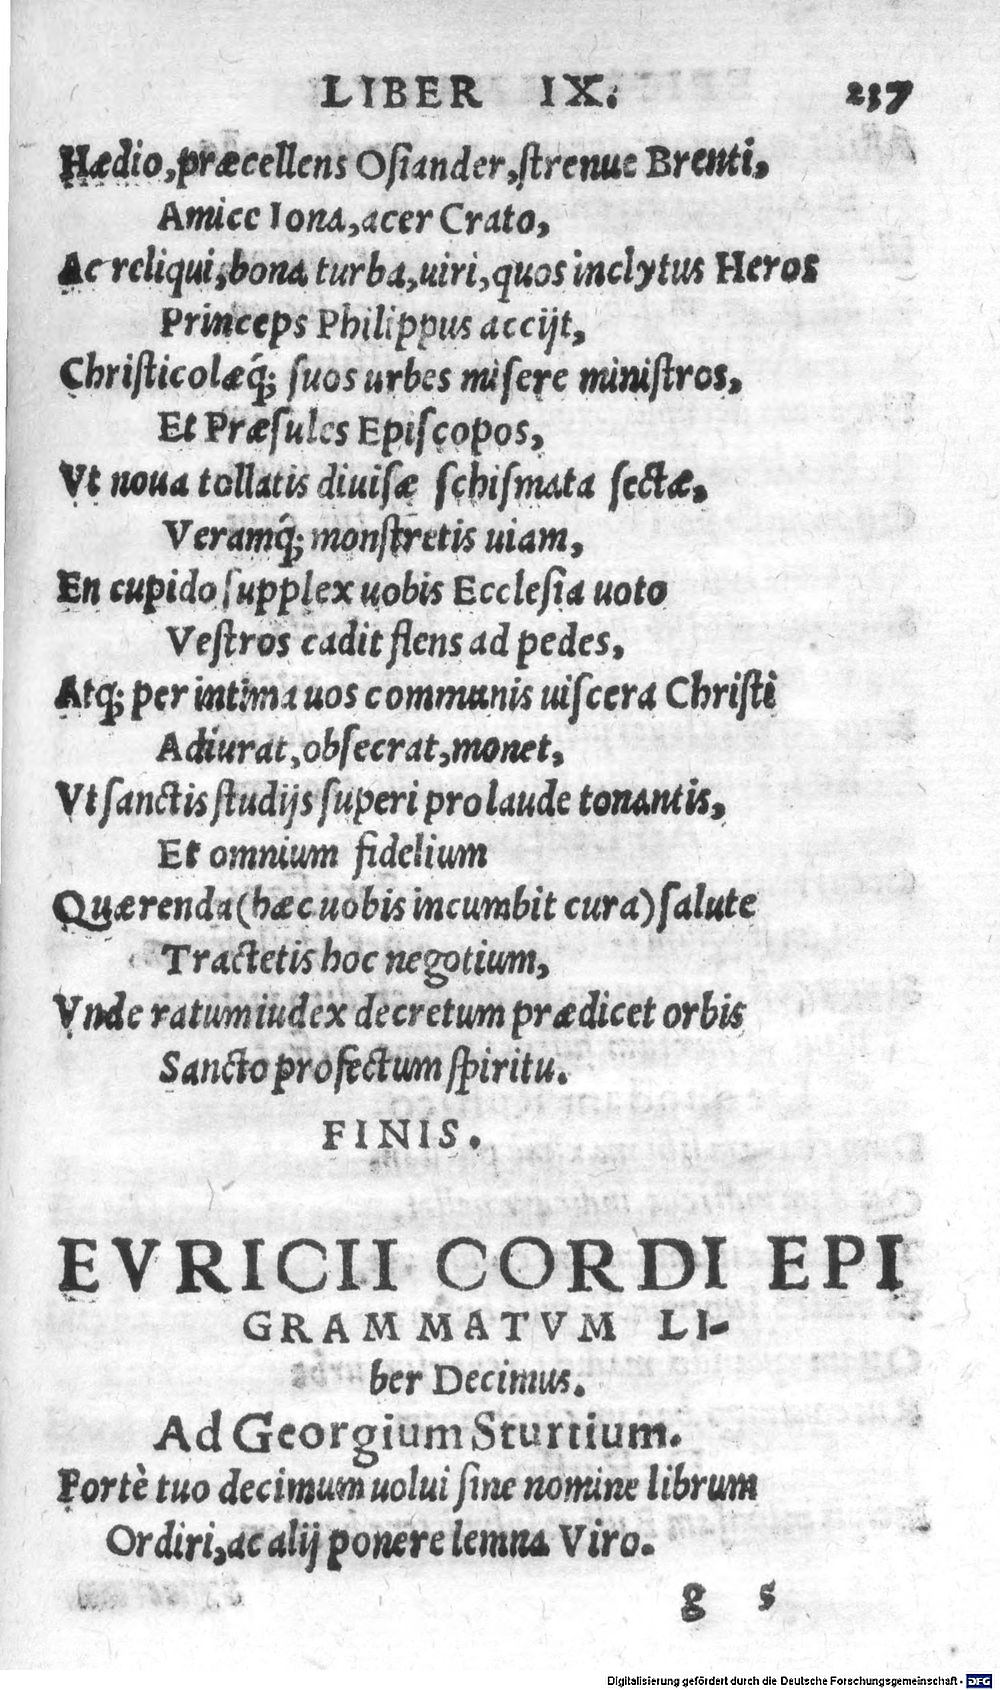 LIBER IX. 237
Hædio, præcellens Osiander, strenue Brenti,
Amice Iona, acer Crato,
Ac reliqui, bona turba, uiri, quos inclytus Heros
Princeps Philippus accijt,
Christicolæq́; suos urbes misere ministros,
Et Præsules Episcopos,
Vt noua tollatis diuisæ schismata sectæ,
Veramq́; monstretis uiam,
En cupido supplex uobis Ecclesia uoto
Vestros cadit flens ad pedes,
Atq; per intima uos communis uiscera Christi
Adiurat, obsecrat, monet,
Vt sanctis studijs superi pro laude tonantis,
Et omnium fidelium
Quærenda (hæc uobis incumbit cura) salute
Tractetis hoc negotium,
Vnde ratum iudex decretum prædicet orbis
Sancto profectum spiritu.
FINIS.
EVRICII CORDI EPI
GRAMMATVM LI-
ber Decimus.
Ad Georgium Sturtium.
Fortè tuo decimum uolui sine nomine librum
Ordiri, ac alij ponere lemna Viro.
g s
Digitalisierung gefördert durch die Deutsche Forschungsgemeinschaft - DFG